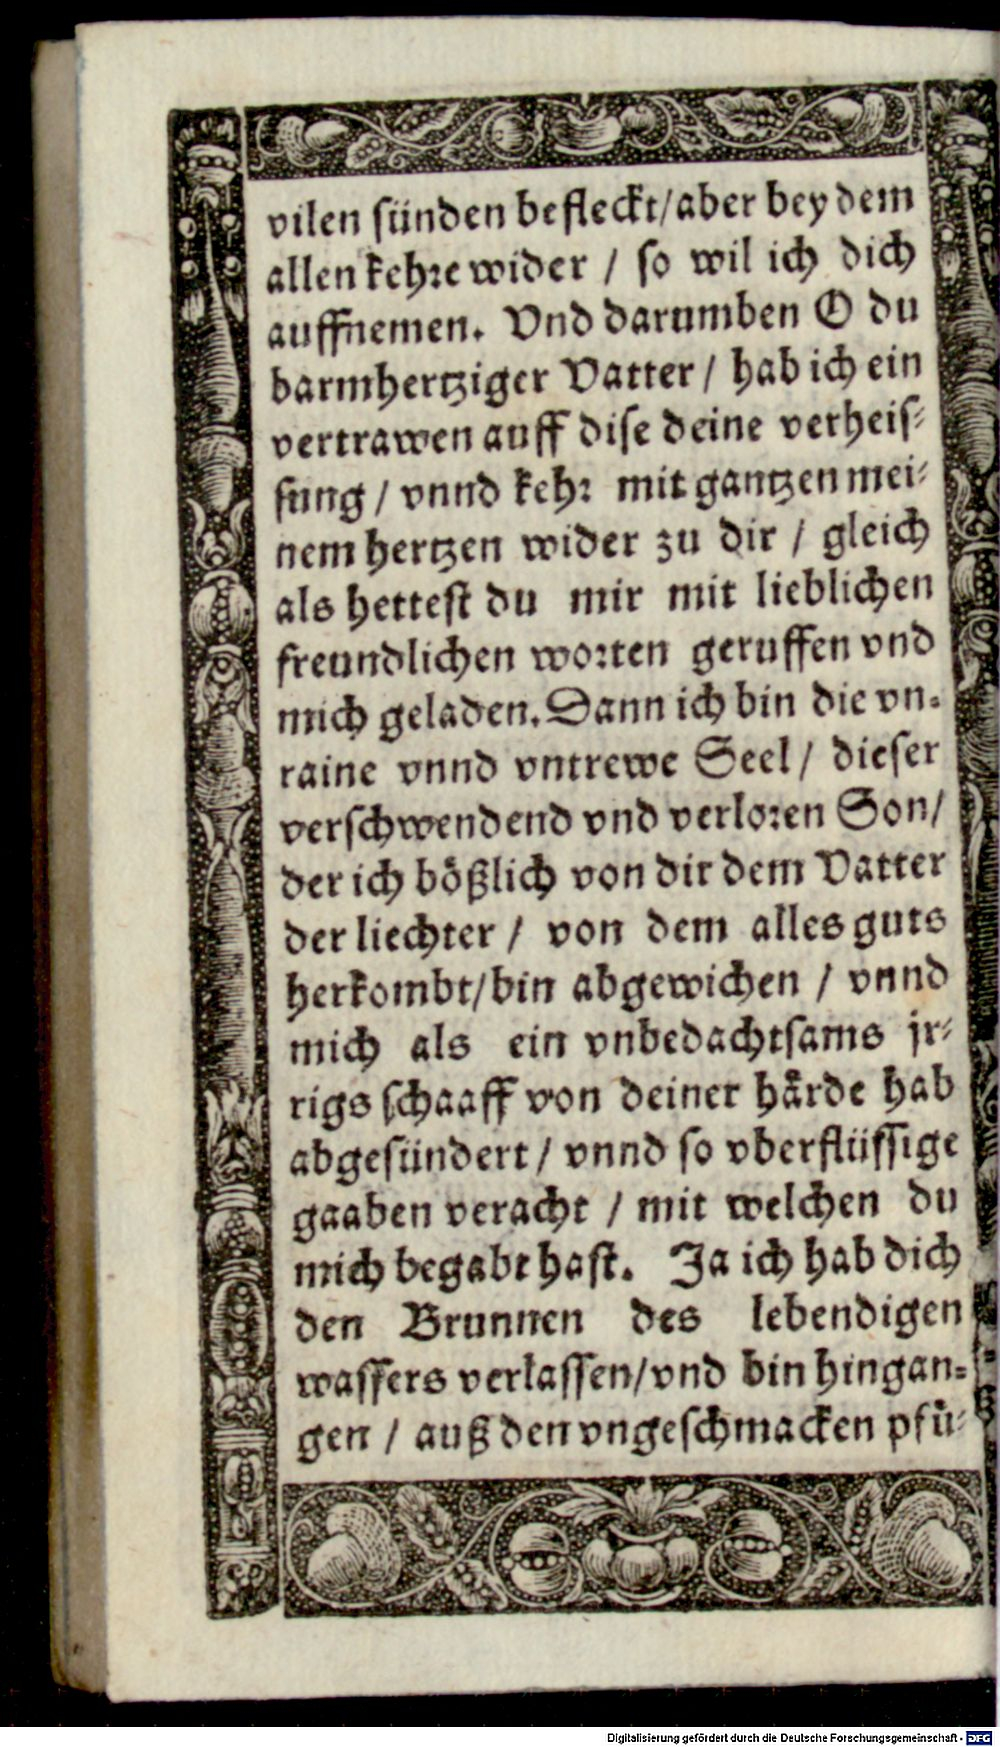 vilen sünden befleckt/aber bey dem
allen kehre wider / so wil ich dich
auffnemen. Vnd darumben O du
barmhertziger Vatter / hab ich ein
vertrawen auff dise deine verheis-
sung / vnnd kehr mit gantzen mei-
nem hertzen wider zu dir / gleich
als hettest du mir mit lieblichen
freundlichen worten geruffen vnd
mich geladen. Dann ich bin die vn-
raine vnnd vntrewe Seel / dieser
verschwendend vnd verloren Son/
der ich bößlich von dir dem Vatter
der liechter / von dem alles guts
herkombt/bin abgewichen / vnnd
mich als ein vnbedachtsams jr-
rigs schaaff von deiner härde hab
abgesündert / vnnd so vberflüssige
gaaben veracht / mit welchen du
mich begabt hast. Ja ich hab dich
den Brunnen des lebendigen
wassers verlassen/vnd bin hingan-
gen / auß den vngeschmacken pfü-
Digitalisierung gefördert durch die Deutsche Forschungsgemeinschaft - DFG